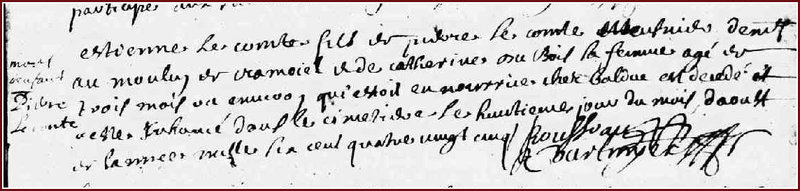 participer aux
estienne Le comte fils de pierre Le comte meusnier demt
au moulin de cramoiel et de catherine du bois sa femme agé de
trois mois ou environ qui estoit en nourrice chez baldue est decedé et
a esté Inhumé dans le cimetiere le huitieme jour du mois daoust
de lannee mille six cent quatre vingt cinq
mort
enfant
Pierre
Le conte
Rousseau